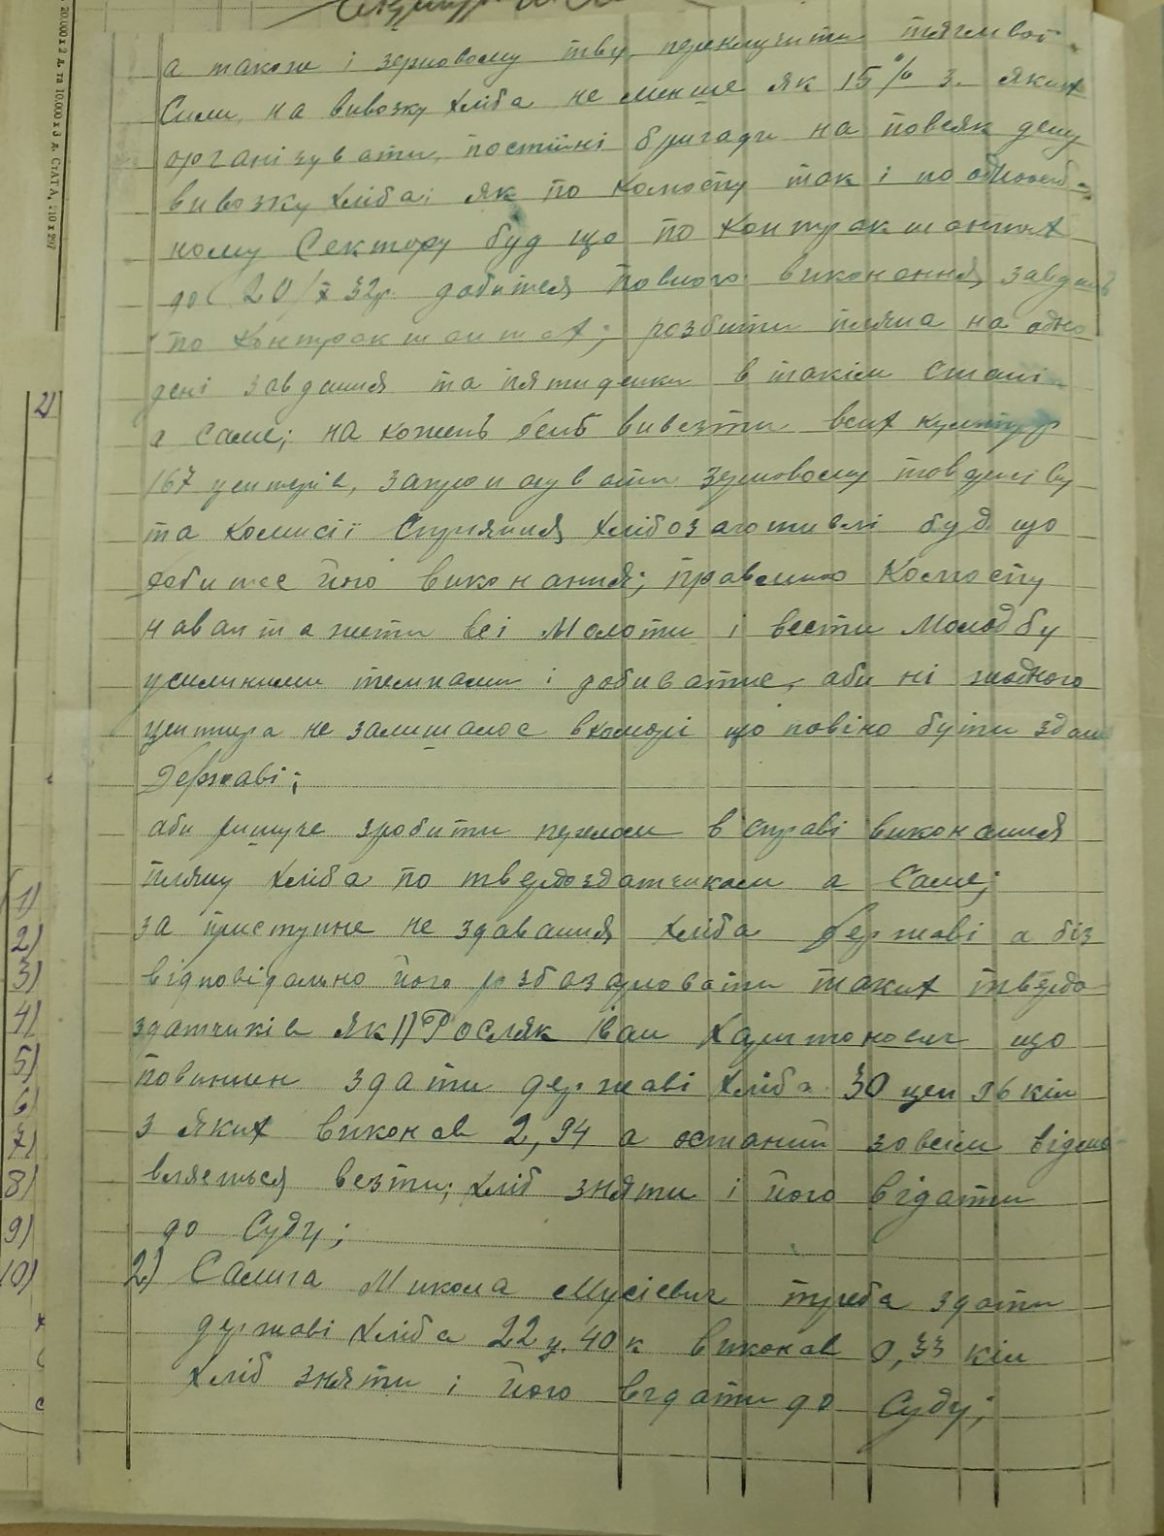 а також і зерновому тву переключити тяглової
Сили, на вивозку хліба не менше як 15% з яких
організувати постійні бригади на повсяк дену
вивозку хліба; як по колгоспу так і по односіб-
ному Сектору буд що по контрактантах
до 20/X 32р. добитися повного виконення завдань
по контрактантах; розбити пляна на одно
дені завдання та пятиденки в такім стані
а саме; на кожень день вивезти всих культур
167 центерів, запропонувати зерновому товариству
та комисії Сприяння хлібозаготивлі буд що
добитсе його виконання; правлиню Колгоспу
навантажити всі молоти і вести молодбу
усилиними темпами і добиватис, аби ні жодного
центнра не залишалос вкоморі що повіно бути здано
Державі;
аби ришуче зробити перелом в справі виконання
пляну хліба по твердоздатчикам а Саме;
за приступне не здавання хліба державі а біз
відповідально його розбазарювати таких твердо
здатчиків як 1) Росляк Іван Харитонович що
повинин здати державі хліба 30 цен 96 кіл
з яких виконав 2,94 а останий зовсім відмо
вляеться везти; хліб зняти і його відати
до Суду;
2) Салига Микола Мусієвич треба здати
державі хліба 22 ц. 40 к виконав 0,33 кіл
хліб зняти і його відати до Суду;
2)
1)
2)
3)
4)
5)
6)
7)
8)
9)
10)